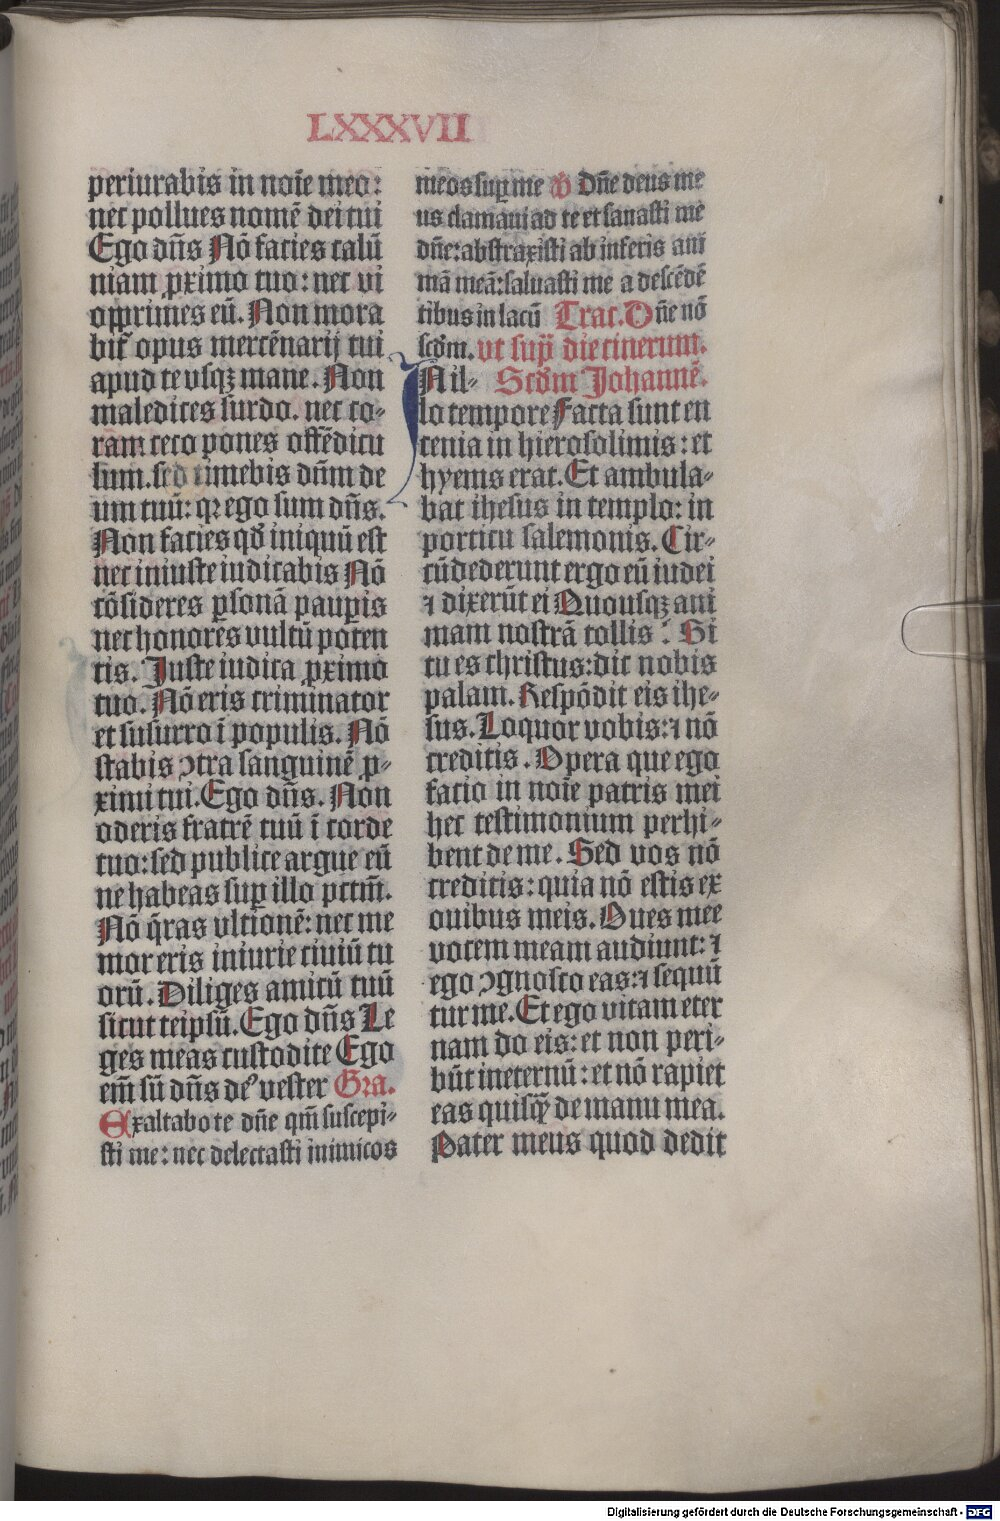 LXXXVII
periurabis in noīe meo:
nec pollues nomē dei tui
Ego dn̄s Nō facies calū
niam ꝓximo tuo: nec vi
opprimes eū. Non mora
bit᷑ opus mercēnarij tui
apud te vsqꝫ mane. Non
maledices surdo. nec co-
ram ceco pones offēdicu
lum. sed timebis dn̄m de
um tuū: qꝛ ego sum dn̄s.
Non facies qđ iniquū est
nec iniuste iudicabis Nō
cōsideres ꝑsonā pauꝑis
nec honores vultū poten
tis. Iuste iudica ꝓximo
tuo. Nō eris criminator
et susurro ī populis. Nō
stabis ꝯtra sanguinē ꝓ-
ximi tui. Ego dn̄s. Non
oderis fratrē tuū ī corde
tuo: sed publice argue eū
ne habeas suꝑ illo pctm̄.
Nō q̄ras vltionē: nec me
mor eris iniurie ciuiū tu
orū. Diliges amicū tuū
sicut teipsū. Ego dn̄s Le
ges meas custodite Ego
em̄ sū dn̄s deꝰ vester Gra.
Exaltabo te dn̄e qm̄ suscepi-
sti me: nec delectasti inimicos
meos suꝑ me ℣ Dn̄e deus me
us clamaui ad te et sanasti me
dn̄e: abstraxisti ab inferis ani
mā meā: saluasti me a descēdē
tibus in lacū Trac. Dn̄e nō
scđm. vt sup̄ die cinerum.
IN il- Scđm Johannē.
lo tempore Facta sunt en
cenia in hierosolimis: et
hyems erat. Et ambula-
bat ihesus in templo: in
porticu salemonis. Cir-
cūdederunt ergo eū iudei
⁊ dixerūt ei Quousqꝫ ani
mam nostrā tollis: Si
tu es christus: dic nobis
palam. Respōdit eis ihe-
sus. Loquor vobis: ⁊ nō
creditis. Opera que ego
facio in noīe patris mei
hec testimonium perhi-
bent de me. Sed vos nō
creditis: quia nō estis ex
ouibus meis. Oues mee
vocem meam audiunt: ⁊
ego ꝯgnosco eas: ⁊ sequū
tur me. Et ego vitam eter
nam do eis: et non peri-
būt ineternū: et nō rapiet
eas quisq̄ de manu mea.
Pater meus quod dedit
Digitalisierung gefördert durch die Deutsche Forschungsgemeinschaft - DFG